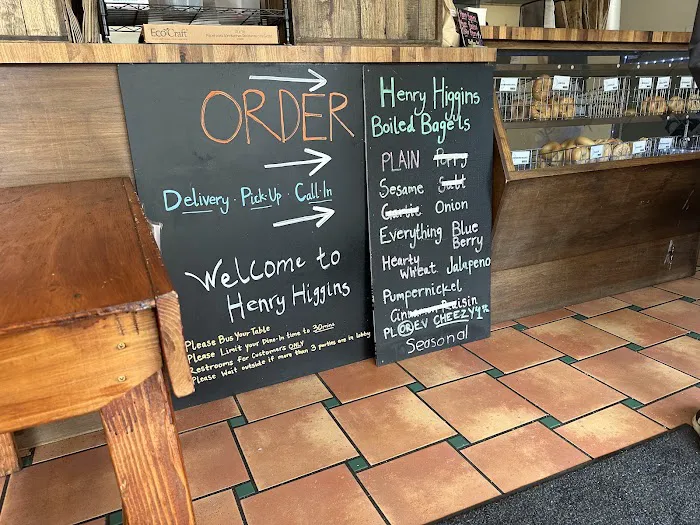 EcoCraft
ORDER
Delivery · Pick-Up · Call-In
Welcome to
Henry Higgins
Please Bus Your Table
Please Limit your Dine-In time to 30mins
Restrooms for Customers ONLY
Please Wait outside if more than 3 parties are in lobby
Henry Higgins
Boiled Bagels
PLAIN Poppy
Sesame Salt
Garlic Onion
Everything Blue
Berry
Hearty
Wheat Jalapeno
Pumpernickel
Cinnamon Raisin
PL OR EV CHEEZY
Seasonal